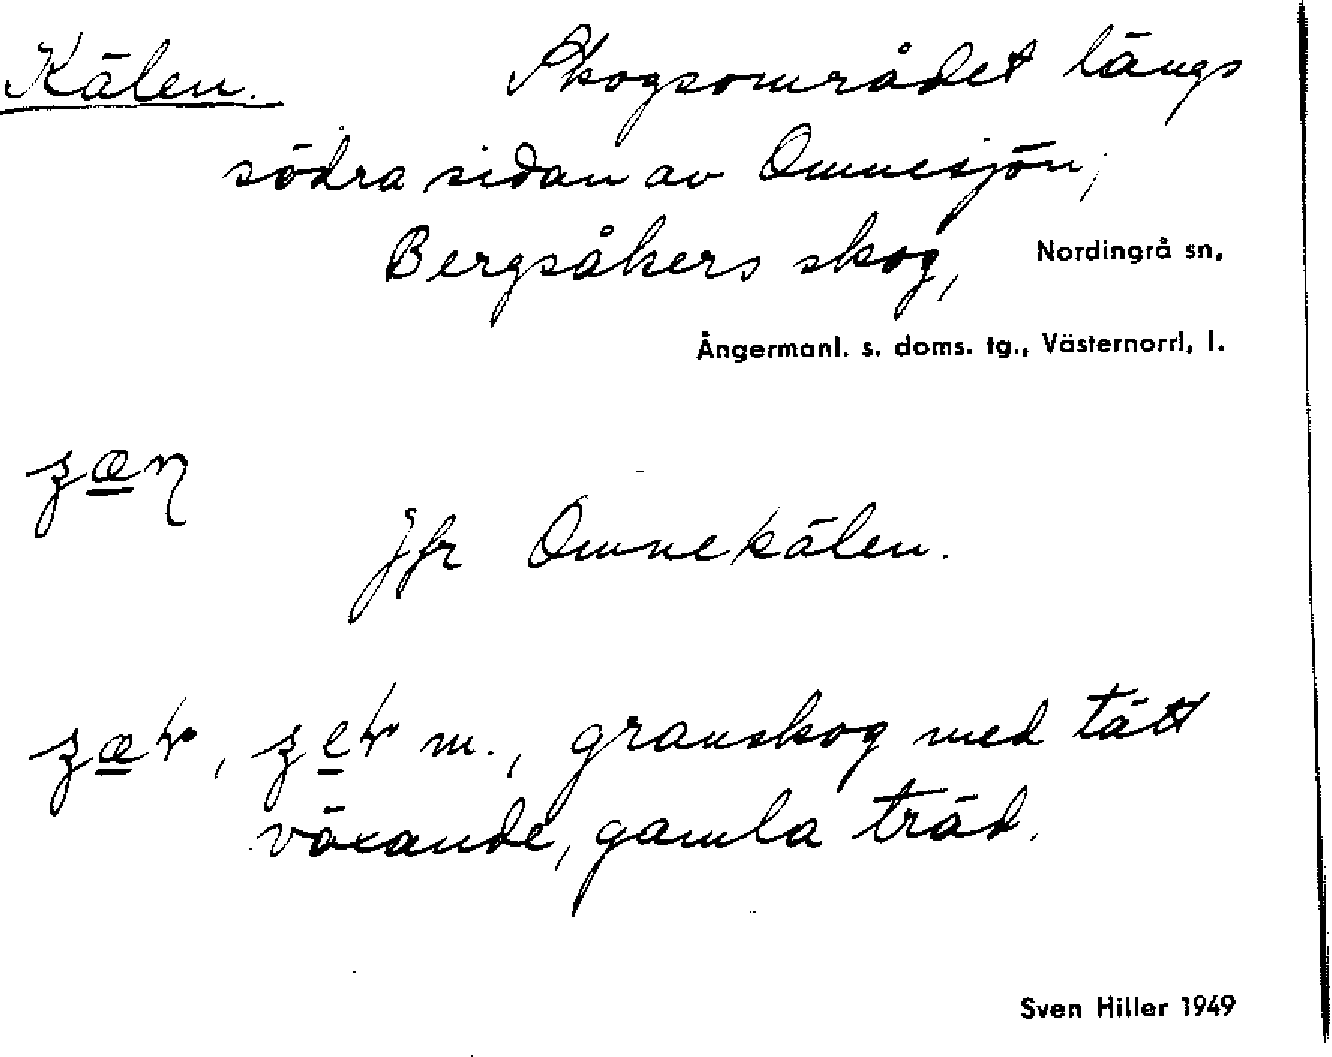 Kälen. Skogsområdet längs
södra sidan av Omnesjön,
Bergsåkers skog, Nordingrå sn,
Ångermanl. s. doms. tg., Västernorrl, l.
jfr Omnekälen.
m., granskog med tätt
växande, gamla träd.
Sven Hiller 1949